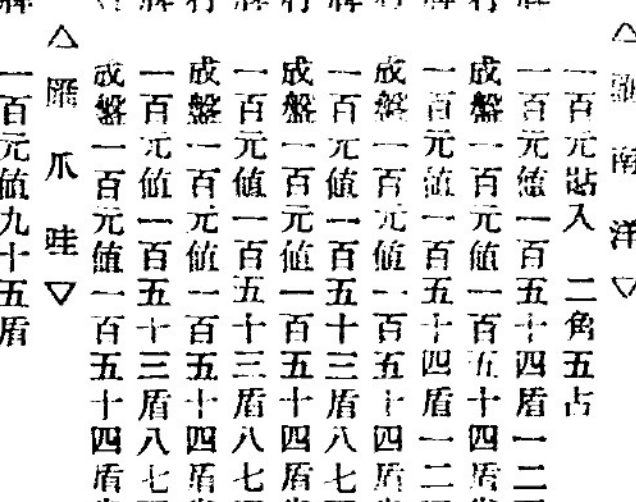 △匯南洋▽
一百元貼入 二角五占
一百元値一百五十四盾一二
成盤一百元値一百五十四盾
一百元値一百五十四盾一二
成盤一百元値一百五十四盾
一百元値一百五十三盾八七
成盤一百元値一百五十四盾
一百元値一百五十三盾八七
成盤一百元値一百五十四盾
一百元値一百五十三盾八七
成盤一百元値一百五十四盾
△匯爪哇▽
一百元値九十五盾